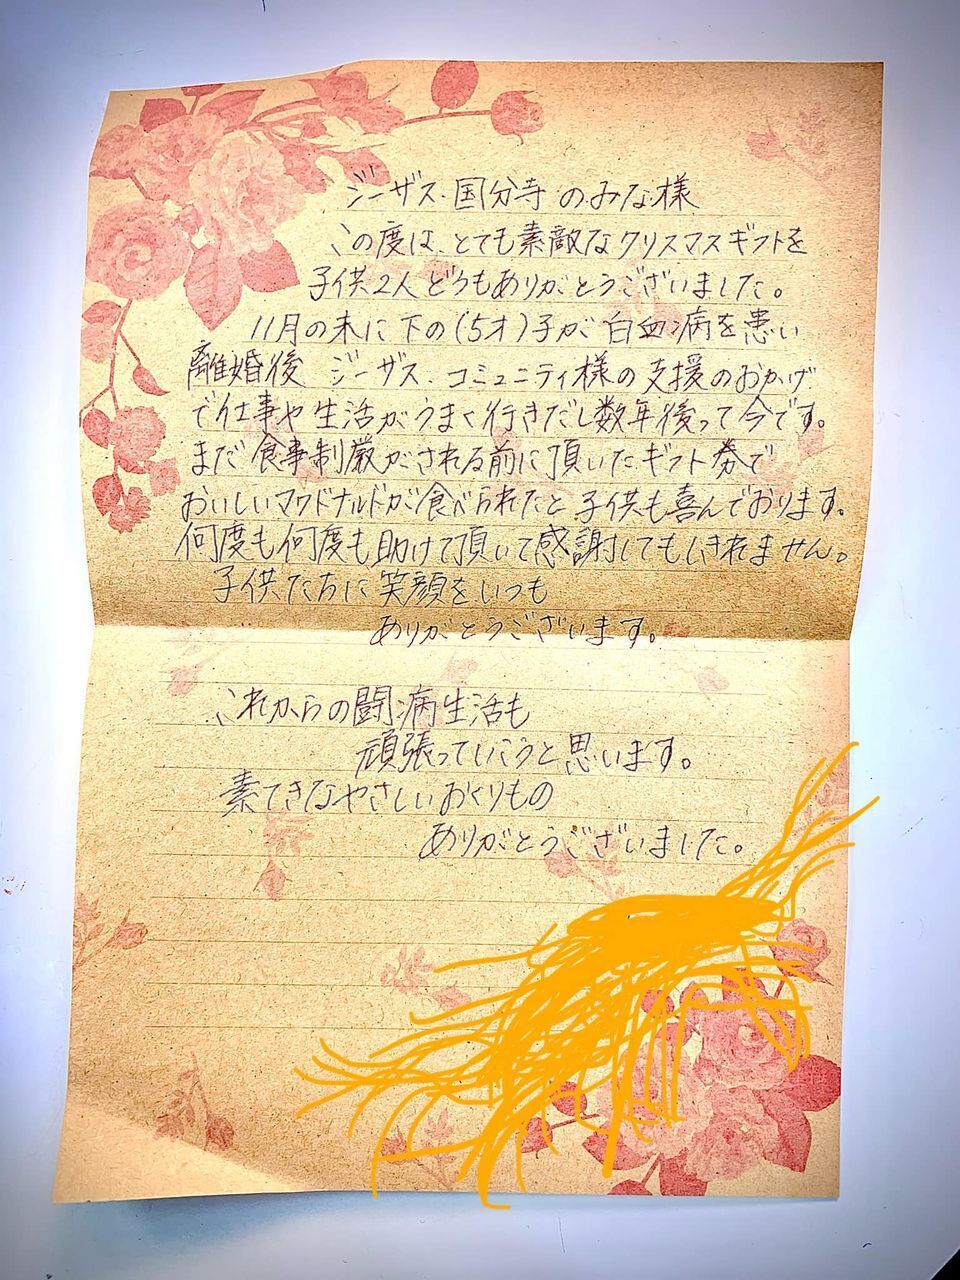 ジーザス・国分寺のみな様
この度は、とても素敵なクリスマスギフトを
子供2人どうもありがとうございました。
11月の末に下の(5才)子が白血病を患い
離婚後 ジーザス・コミュニティ様の支援のおかげ
で仕事や生活がうまく行きだし数年後って今です。
まだ食事制厳がされる前に頂いたギフト券で
おいしいマクドナルドが食べられたと子供も喜んでおります。
何度も何度も助けて頂いて感謝してもしきれません。
子供たちに笑顔をいつも
ありがとうございます。
これからの闘病生活も
頑張っていこうと思います。
素てきなやさしいおくりもの
ありがとうございました。